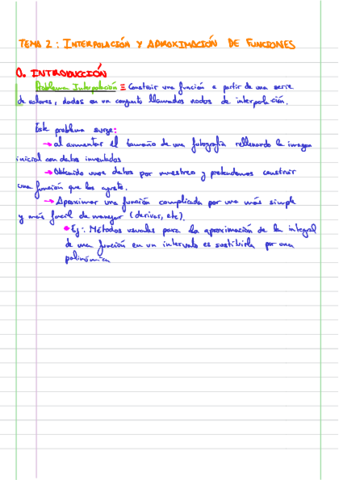 TEMA 2: INTERPOLACIÓN Y APROXIMACIÓN DE FUNCIONES
0. INTRODUCCIÓN
Problema Interpolación ≡ Construir una función a partir de una serie
de valores, dados en un conjunto llamados nodos de interpolación.
Este problema surge:
→ al aumentar el tamaño de una fotografía rellenando la imagen
inicial con datos inventados
→ Obtenido unos datos por muestreo y pretendemos construir
una función que los ajuste.
→ Aproximar una función complicada por una más simple
y más fácil de manejar (derivar, etc).
• Ej: Métodos usuales para la aproximación de la integral
de una función en un intervalo es sustituirla por una
polinómica